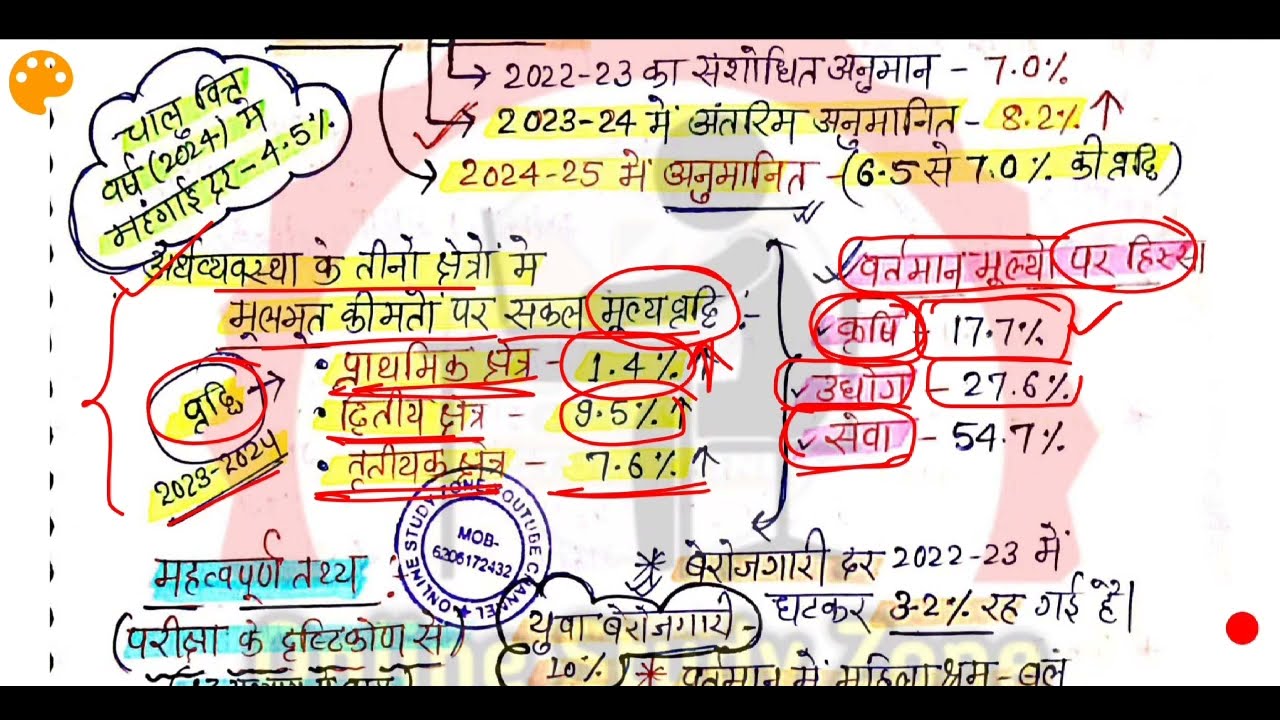 2022-23 का संशोधित अनुमान - 7.0%
2023-24 में अंतरिम अनुमानित - 8.2%↑
2024-25 में अनुमानित - (6.5 से 7.0% की वृद्धि)
चालु वित्त
वर्ष (2024) में
महंगाई दर - 4.5%
अर्थव्यवस्था के तीनों क्षेत्रों में
मूलभूत कीमतों पर सकल मूल्य वृद्धि :-
वृद्धि →
2023-2024
• प्राथमिक क्षेत्र - 1.4% ↑
• द्वितीय क्षेत्र - 9.5% ↑
• तृतीयक क्षेत्र - 7.6% ↑
वर्तमान मूल्यों पर हिस्सा
कृषि - 17.7%
उद्योग - 27.6%
सेवा - 54.7%
ONLINE STUDY ZONE YOUTUBE CHANNEL
MOB-
6206172432
महत्वपूर्ण तथ्य :
(परीक्षा के दृष्टिकोण से)
* बेरोजगारी दर 2022-23 में
घटकर 3.2% रह गई है।
युवा बेरोजगारी -
10%
* वर्तमान में महिला श्रम - बल